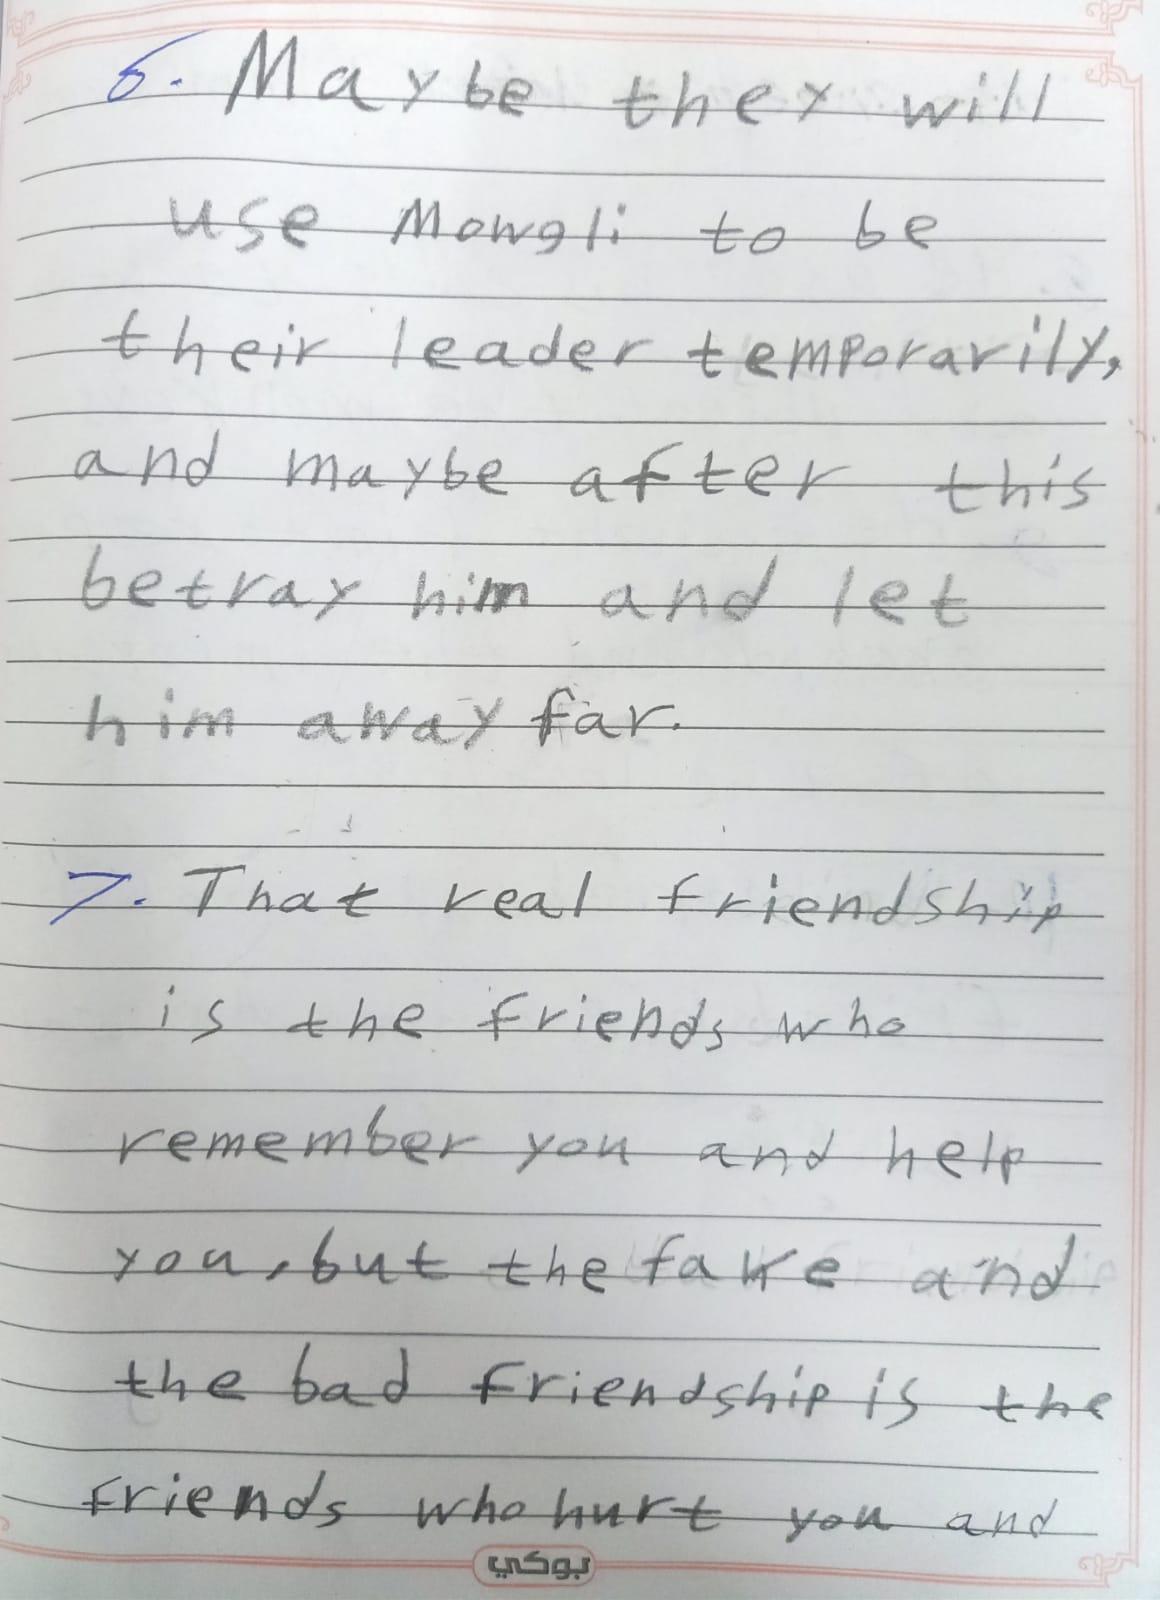 6. Maybe they will
use Mowgli to be
their leader temporarily,
and maybe after this
betray him and let
him away far.
7. That real friendship
is the friends who
remember you and help
you, but the fake and
the bad friendship is the
friends who hurt you and
بوكي